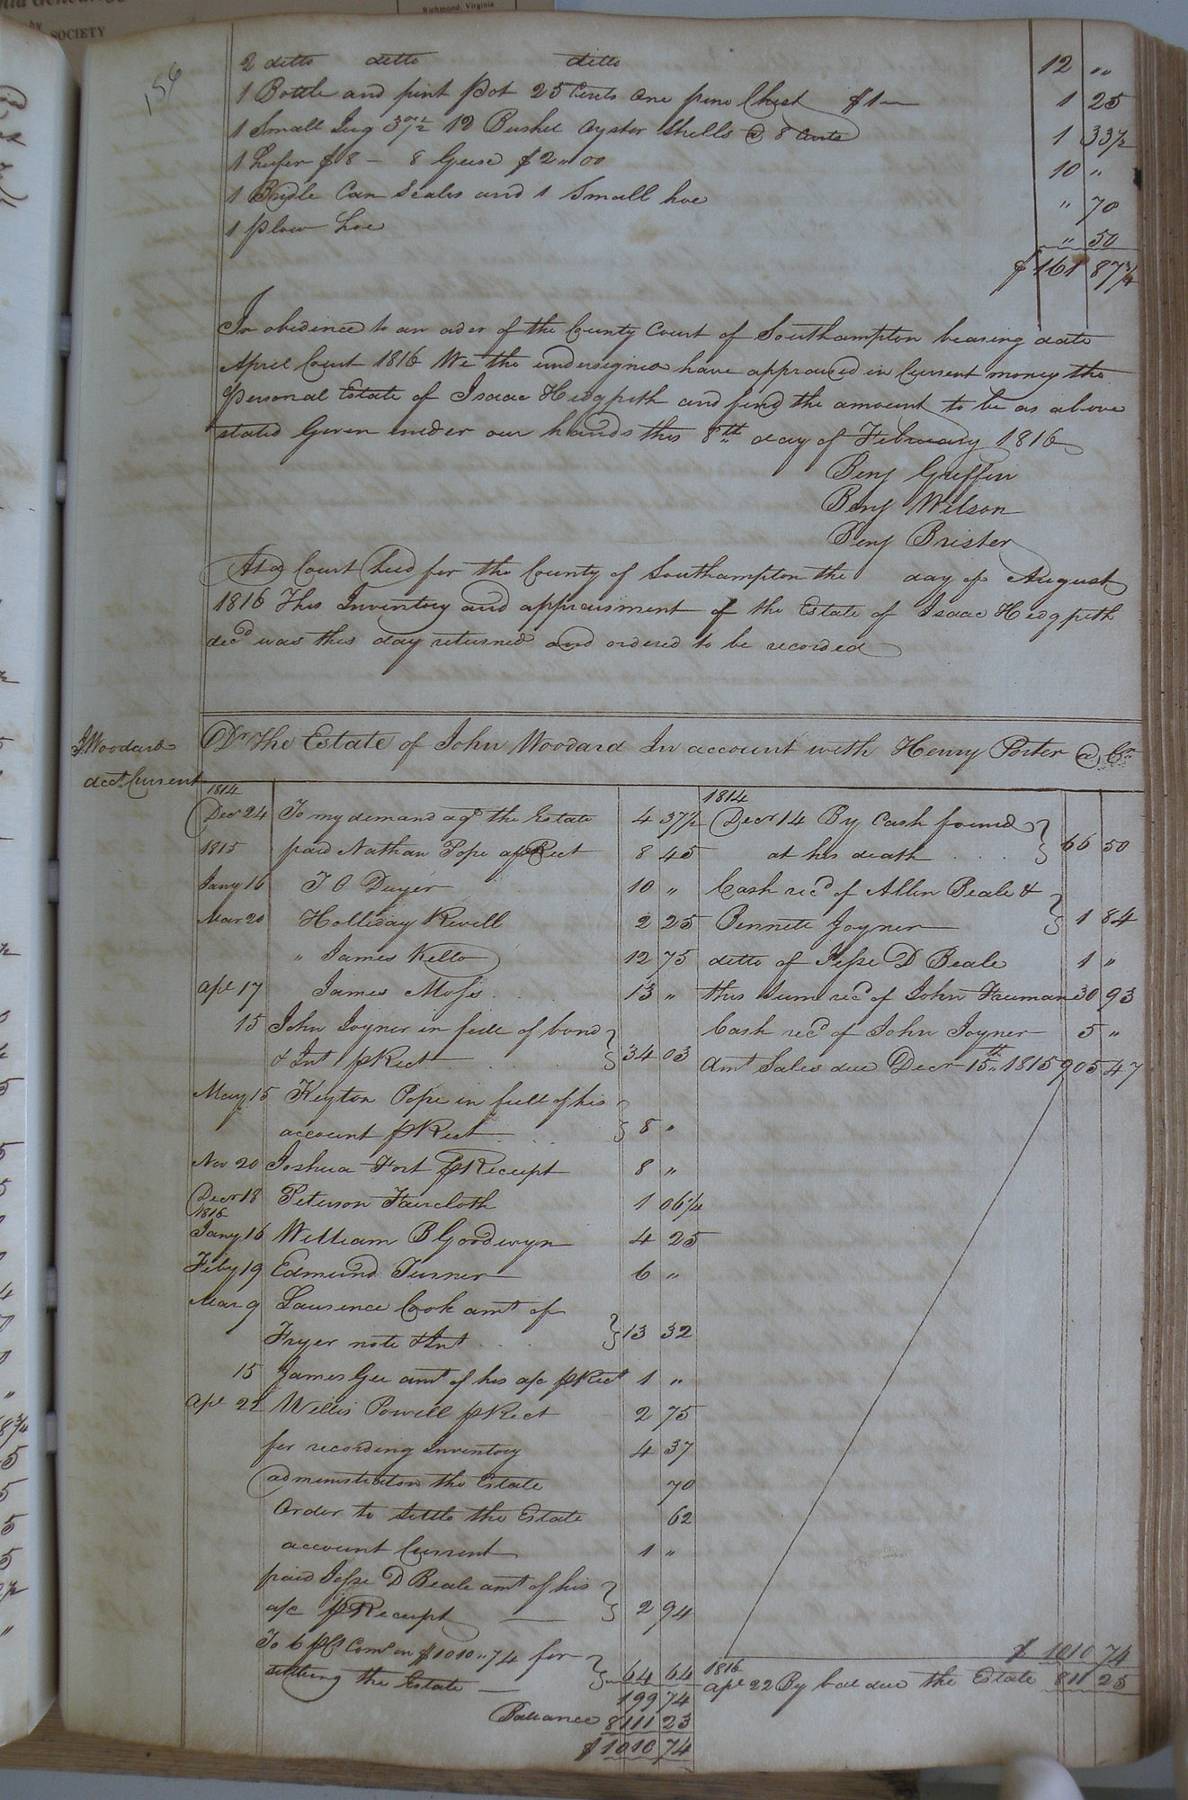 Richmond, Virginia
by
SOCIETY
156
2 ditto ditto ditto 12 "
1 Bottle and pint Pot 25 Cents one pine Chest $1— 1 25
1 Small Jug 37½ 12 Bushel oyster Shells @ 8 Cents 1 33½
1 Heifer $8 — 8 Geese $2 " 00 10 "
1 Bridle Can Scales and 1 Small hoe " 70
1 plow hoe " 50
$161 87¾
In obedince to an oder of the County Court of Southampton bearing date
April Court 1816 We the undersigned have appraised in Current money the
Personal Estate of Isaac Hedgpeth and find the amount to be as above
stated Given under our hands this 8th day of February 1816
Benj Griffin
Benj Wilson
Benj Brister
At a Court held for the County of Southampton the day of August
1816 This Inventory and appraisment of the Estate of Isaac Hedgpeth
decd was this day returned and ordered to be recorded
J Woodards
acct Current
Dr The Estate of John Woodard In account with Henry Porter @ Cr
1814
Decr 24 To my demand agt the Estate 4 37½
1815 paid Nathan Pope a/c Rect 8 45
Jany 16 T O Dwyer 10 "
Mar 20 Holliday Revell 2 25
" James Kello 12 75
apl 17 James Moss 13 "
15 John Joyner in full of bond
& Int p Rect 34 03
May 15 Keyton Pope in full of his
account p Rect 8 "
Nov 20 Joshua Fort p Receipt 8 "
Decr 18 Peterson Faircloth 1 06¼
1816
Jany 16 William B Goodwyn 4 25
Feby 19 Edmund Turner 6 "
Mar 9 Laurence Cook amt of
Fryer note & Int 13 32
15 James Gee amt of his a/c p Rect 1 "
apl 22 Willis Powell p Rect 2 75
for recording Inventory 4 37
administration the Estate 70
Order to settle the Estate 62
account Current 1 "
paid Jesse D Beale amt of his
a/c p Receipt — 2 94
To 6 p Ct Coms on $1010 " 74 for
settling the Estate — 64 64
199 74
Balance 811 23
$1010 74
1814
Decr 14 By Cash found
at his death 66 50
Cash recd of Allen Beale &
Bennett Joyner 1 84
ditto of Jesse D Beale 1 "
this sum recd of John Freeman 30 93
Cash recd of John Joyner 5 "
Amt Sales due Decr 15th 1815 905 47
$1010 74
1816
apl 22 By bal due the Estate 811 25